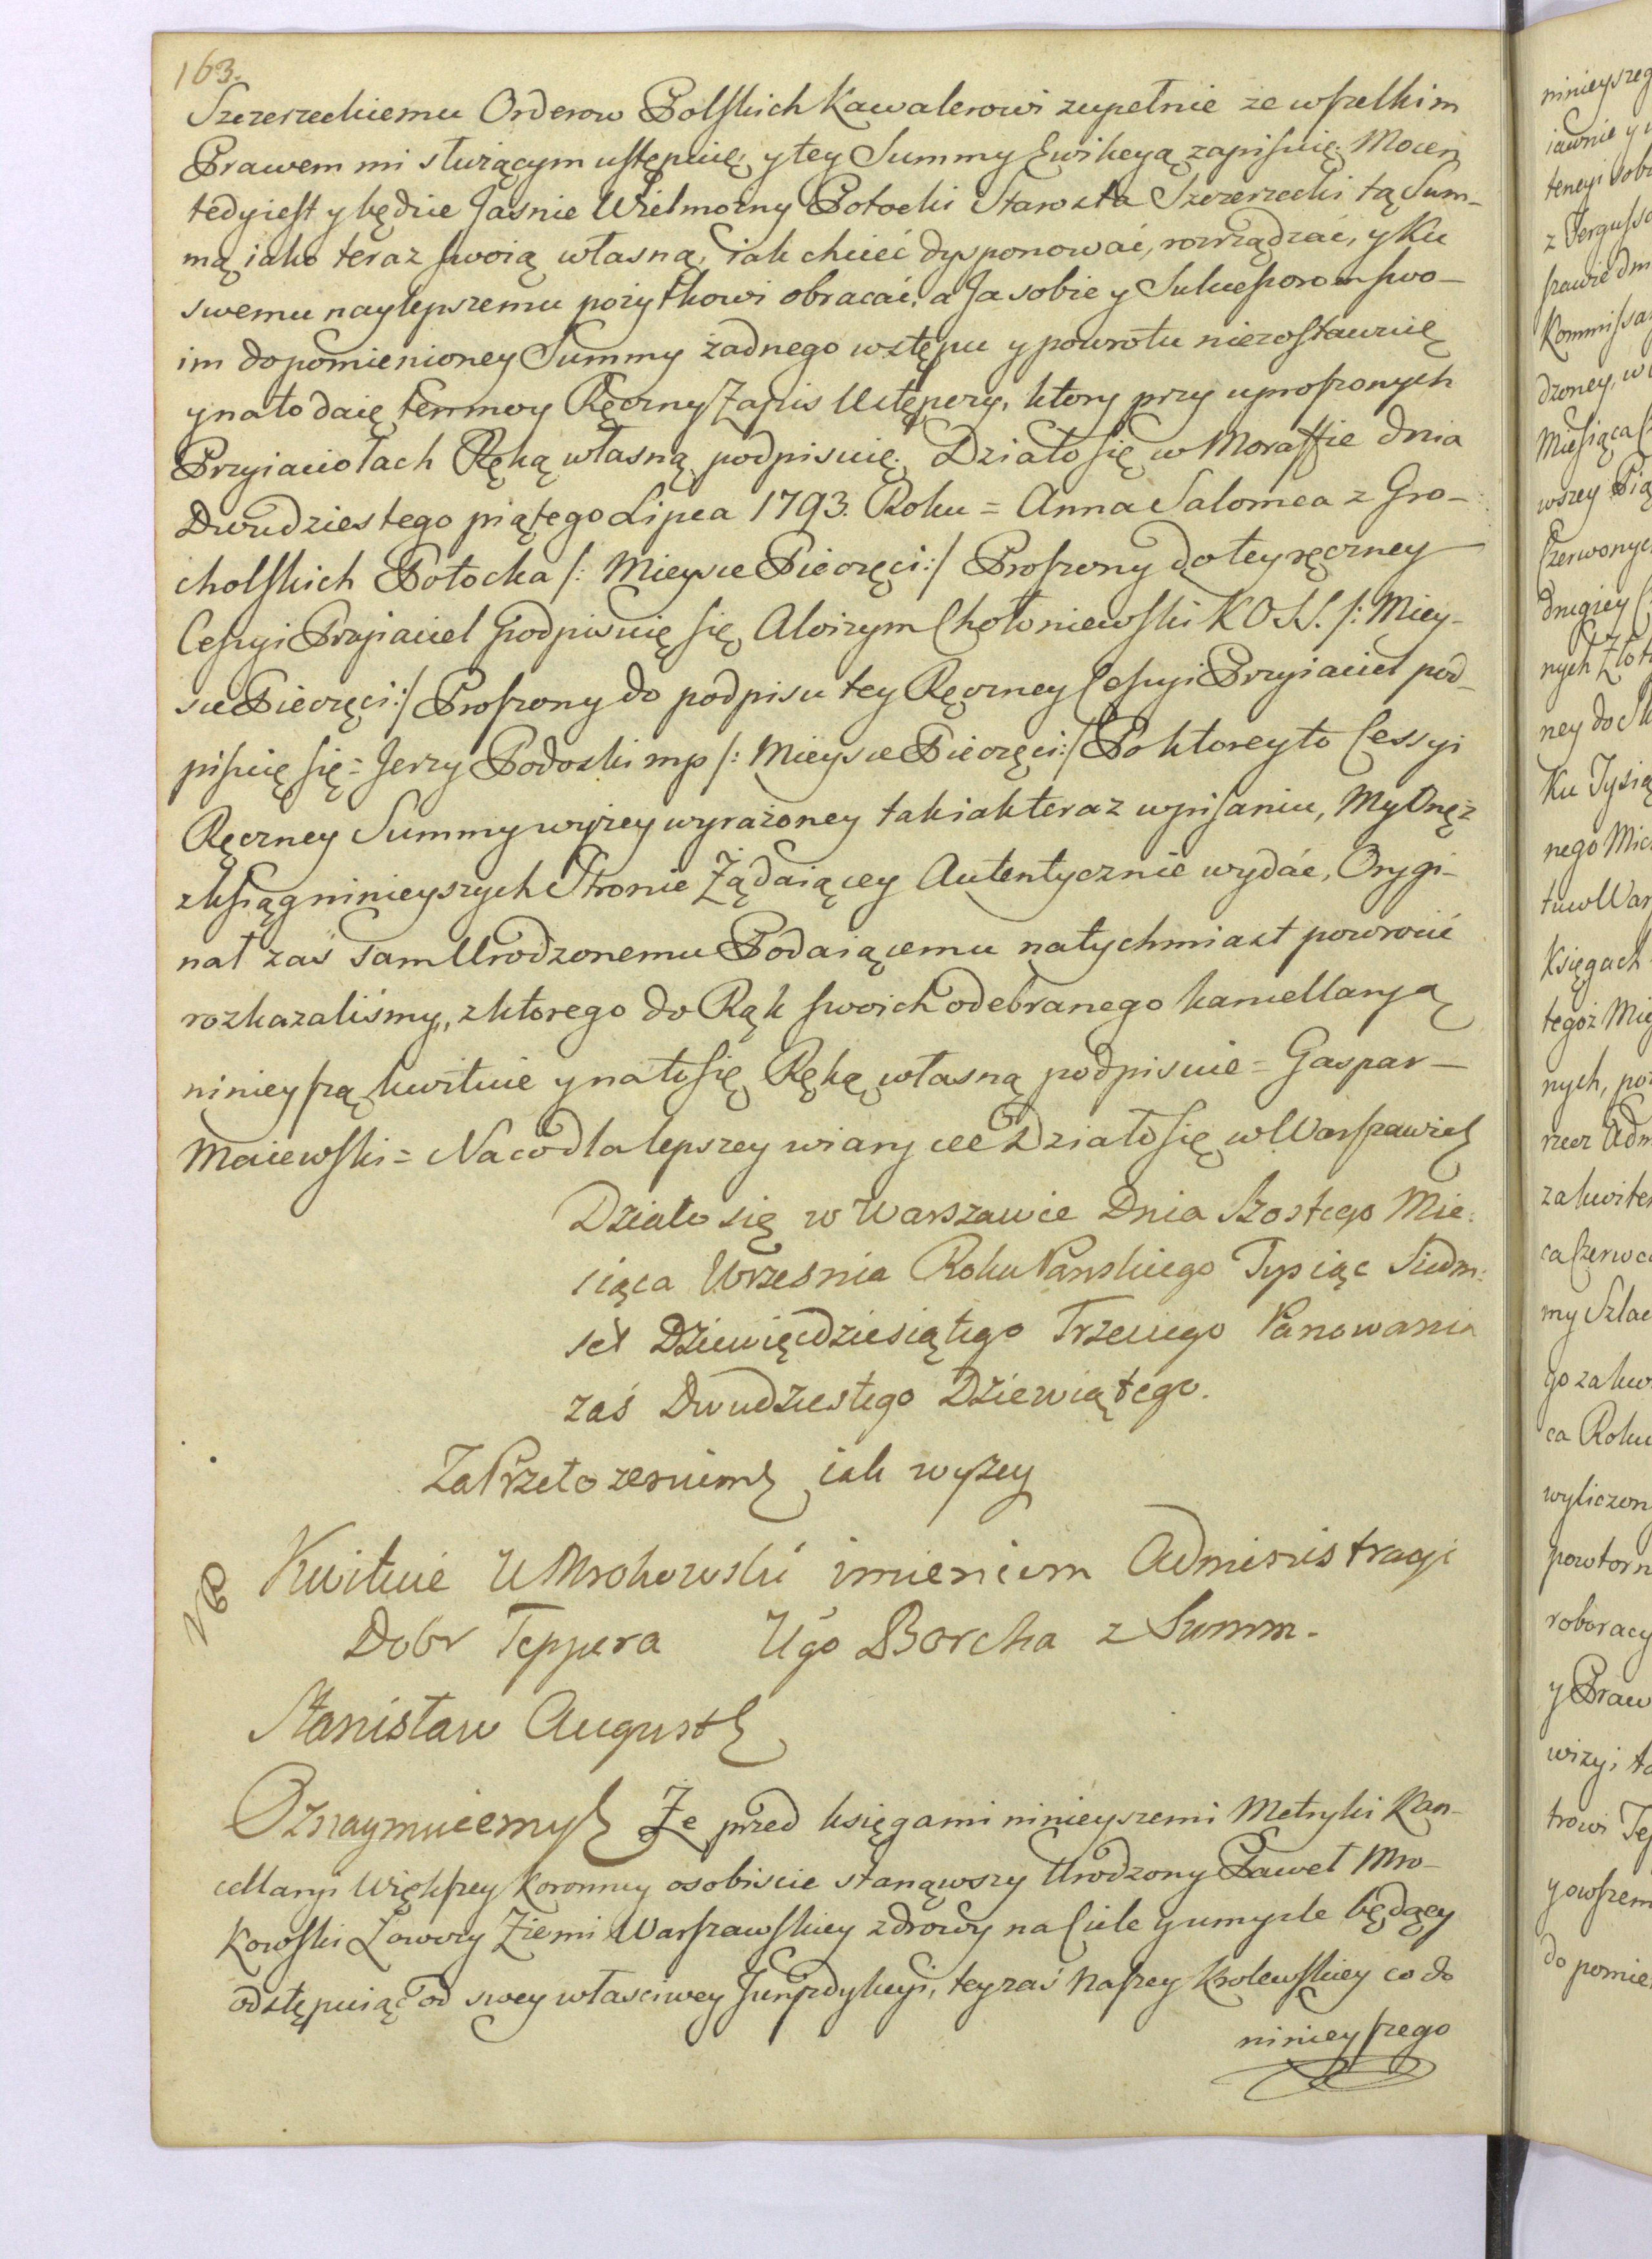 163.
Szczerzeckiemu Orderow Polskich Kawalerowi zupełnie ze wszelkim
Prawem mi służącym ustępuię, y tey Summy Ewikcyą zapisuię. Mocen
tedy iest y będzie Jasnie Wielmozny Potocki Starosta Szczerzecki tą Sum-
mą iako teraz swoią własną, iak chcieć dysponować, rozrządzać, y ku
swemu naylepszemu pożytkowi obracać, a Ja sobie y Sukcessorom swo-
im do pomienioney Summy żadnego wstępu y powrotu niezostawuię
y na to daię ten moy Ręczny Zapis Ustępczy, ktory przy uproszonych
Przyiaciołach Ręką własną podpisuię. Działo się w Moraffie dnia
Dwudziestego piątego Lipca 1793. Roku = Anna Salomea z Gro-
cholskich Potocka /: Mieysce Pieczęci :/ Proszony do tey ręczney
Cessyi Przyiaciel podpisuię się Aloizy m Chołoniewski K O S S. /: Miey-
sce Pieczęci :/ Proszony do podpisu tey Ręczney Cessyi Przyiaciel pod-
pisuię się = Jerzy Podoski mp /: Mieysce Pieczęci :/ Po ktorey to Cessyi
Ręczney Summy wyżey wyrażoney tak iak teraz wpisaniu, My Onęż
z Xsiąg ninieyszych Stronie Żądaiącey Autentycznie wydać, Orygi-
nał zaś sam Urodzonemu Podaiącemu natychmiast powrocić
rozkazaliśmy, z ktorego do Rąk swoich odebranego kancellaryą
ninieyszą kwituie y na to się Ręką własną podpisuie = Gaspar
Maiewski = Na co dla lepszey wiary &c Działo się w Warszawie
Działo się w Warszawie Dnia Szostego Mie-
siąca Wrzesnia Roku Panskiego Tysiąc Siedm-
set Dziewięcdziesiątego Trzeciego Panowania
zaś Dwudziestego Dziewiątego.
Za Przełożeniem iak wyżey
NB Kwituie U Mrokowski imieniem Administracyi
Dobr Teppera Ugo Borcha z Summ.
Stanisław August
Oznaymuiemy Że przed księgami ninieyszemi Metryki Kan-
cellaryi Większey Koronney osobiscie stanąwszy Urodzony Paweł Mro-
kowski Łowczy Ziemi Warszawskiey zdrowy na Ciele y umysle będący
odstępuiąc od swey własciwey Juryzdykcyi, tey zaś Naszey Krolewskiey co do
ninieyszego